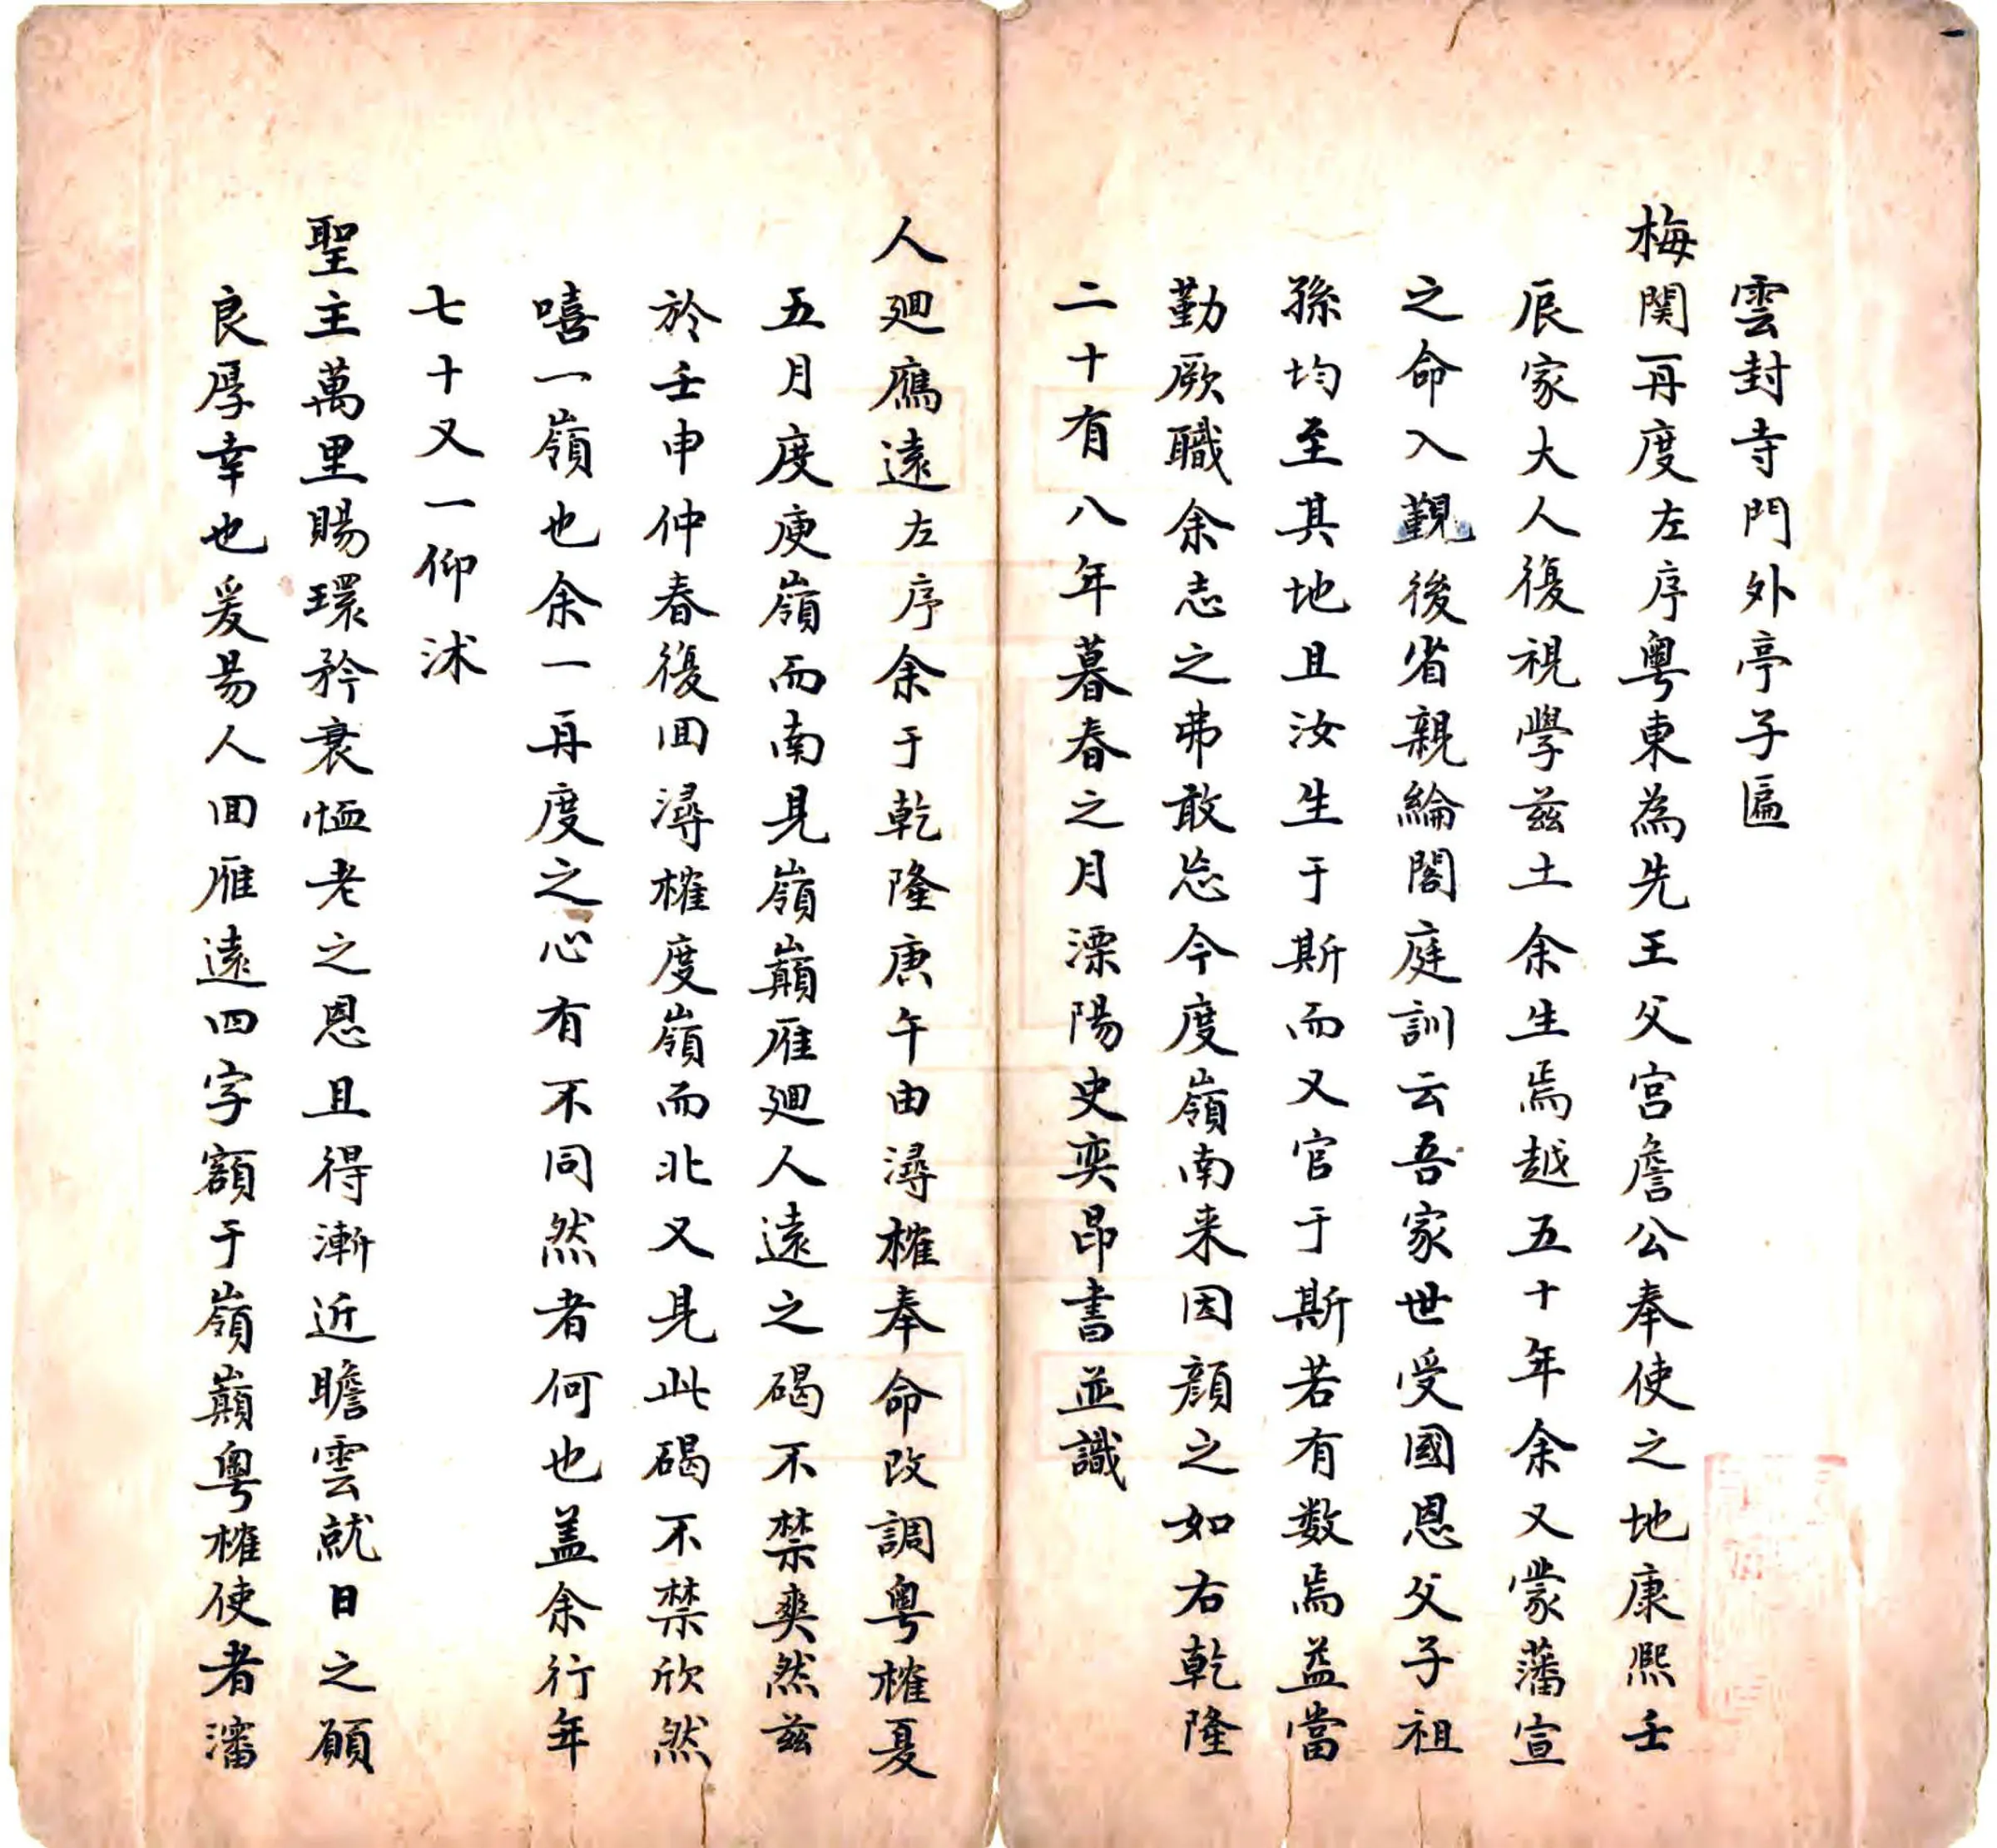 雲封寺門外亭子匾
梅関再度左序粵東為先王父宮詹公奉使之地康熙壬
辰家大人復視學兹土余生焉越五十年余又蒙藩宣
之命入觐後省親綸閣庭訓云吾家世受國恩父子祖
孫均至其地且汝生于斯而又官于斯若有数焉益當
勤厥職余志之弗敢忘今度嶺南来因顔之如右乾隆
二十有八年暮春之月溧陽史奕昂書並識
人廻鴈遠左序余于乾隆庚午由潯榷奉命改調粵榷夏
五月度庾嶺而南見嶺巔雁廻人遠之碣不禁爽然兹
於壬申仲春復回潯榷度嶺而北又見此碣不禁欣然
嘻一嶺也余一再度之心有不同然者何也盖余行年
七十又一仰沭
聖主萬里賜環矜衰恤老之恩且得漸近瞻雲就日之願
良厚幸也爰易人回雁遠四字額于嶺巔粵榷使者瀋